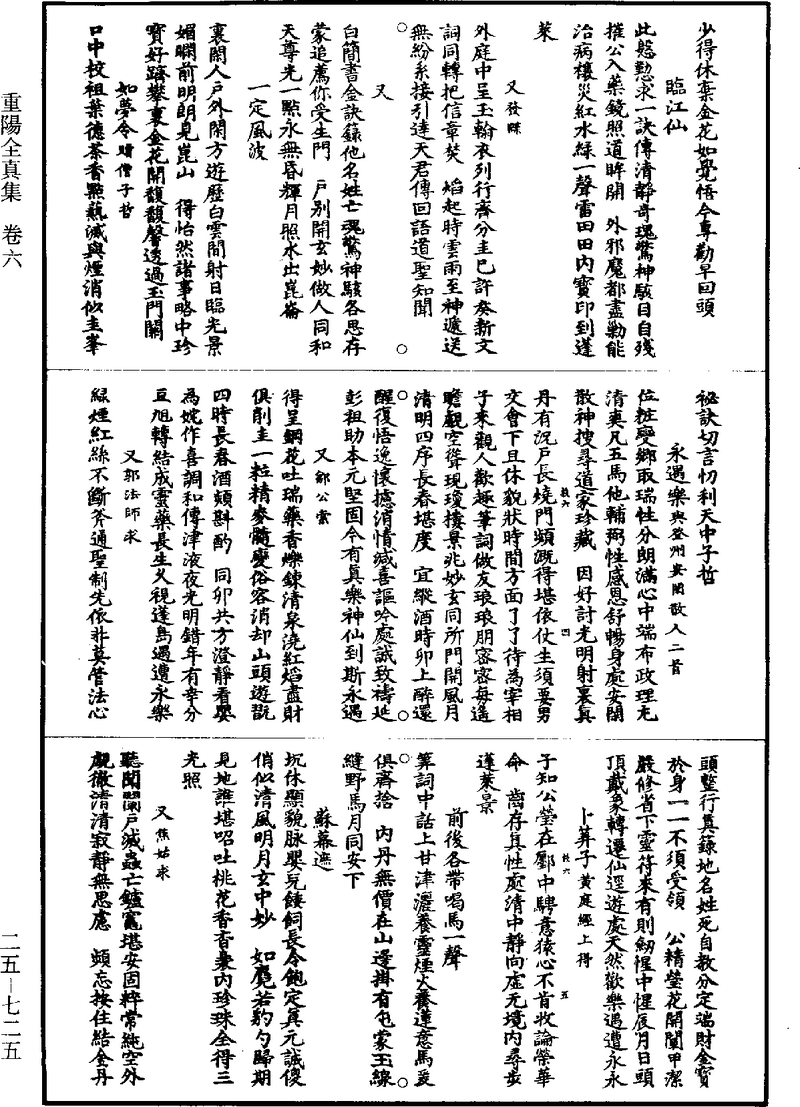 重陽全真集　卷六
二五—七二五
少得休棄金花如覺悟今專勸早回頭
臨江仙
此慇懃求一訣傳清靜奇瑰驚神駭目自殘
摧公入藥鏡照道眸開　外邪魔都盡勦能
治病禳災紅水綠一聲雷田田內寶印到蓬
萊
又發牒
外庭中呈玉翰衣列行齊分圭已許奏新文
詞同轉把信章焚　焰起時雲雨至神遞送
無紛糸接引達天君傳回語道聖知聞
又
白簡書金訣籙他名姓亡魂驚神駭各思存
蒙追薦你受生門　戶別開玄妙做人同和
天尊先一點永無昏輝月照水出崑崙
一定風波
裏閑人戶外閑方遊歷白雲間射日臨光景
媚矙前明朗見崑山　得怡然諸事略中珍
寶好躋攀裏金花開馥馥馨透過玉門關
如夢令贈僧子哲
口中校祖葉德茶香點爇滅與煙消似圭峯
秘訣切言忉利天中子哲
永遇樂與登州黃閑散人二首
位粧變鄉取瑞性分朗滿心中端布政理尤
清爽凡五馬他輔弼性感恩舒暢身處安閑
散神搜尋道家珍藏　因好討光明射裏真
丹有況戶長燒門頻溉得堪依仗生須要男
交會下且休貌狀時間方面了了待為宰相
子來觀人歡趣筆詞做友琅琅朋容容每遙
瞻觀空聳現瓊樓景兆妙玄同所門開風月
清明四序長春堪度　宜緩酒時卯上醉還
醒復悟逸懷攄消情減喜謳吟處誠致禱延
彭祖助本元堅固今有真樂神仙到斯永遇
又鄒公索
得呈鋼花吐瑞藥香爍鍊清泉澆紅焰盡財
俱削圭一粒精麥髓變俗容消却山頭遊翫
四時長春酒頻斟酌　同卯共方澄靜看嬰
為姹作喜調和傳津液夜光明錯年有幸分
亘旭轉結成靈藥長生久視蓬島遇遭永樂
又郭法師求
綠煙紅絲不斷斧通聖制先依非莫管法心
頭整行真籙地名姓死自教分定端財金寶
於身一一不須受領　公精瑩花開闡甲潔
嚴修省下靈符來有則劒惺中惺辰月日頭
頂戴象轉遷仙逕遊處天然歡樂遇遭永永
卜筭子黃庭經上得
子知公瑩在鄽中騁意猿心不肯收論榮華
命　崗存真性處清中靜向虛无境內尋步
蓬萊景
前後各帶喝馬一聲
筭詞中話上甘津灑養靈煙火養蓮意馬爰
俱齋捨　內丹無價在山邊掛有屯蒙玉線
縫野馬月同安下
蘇幕遮
坑休顯貌脉嬰兒餧飼長令飽定真元誠傻
俏似清風明月玄中妙　如魔若豹勺歸期
見地誰堪咜吐桃花香香秉內珍珠全得三
光照
又焦姑求
聽聞闡戶滅蟲亡鑪竈堪安固粹常純空外
覷徹清清寂靜無思慮　頻忘按住結金丹